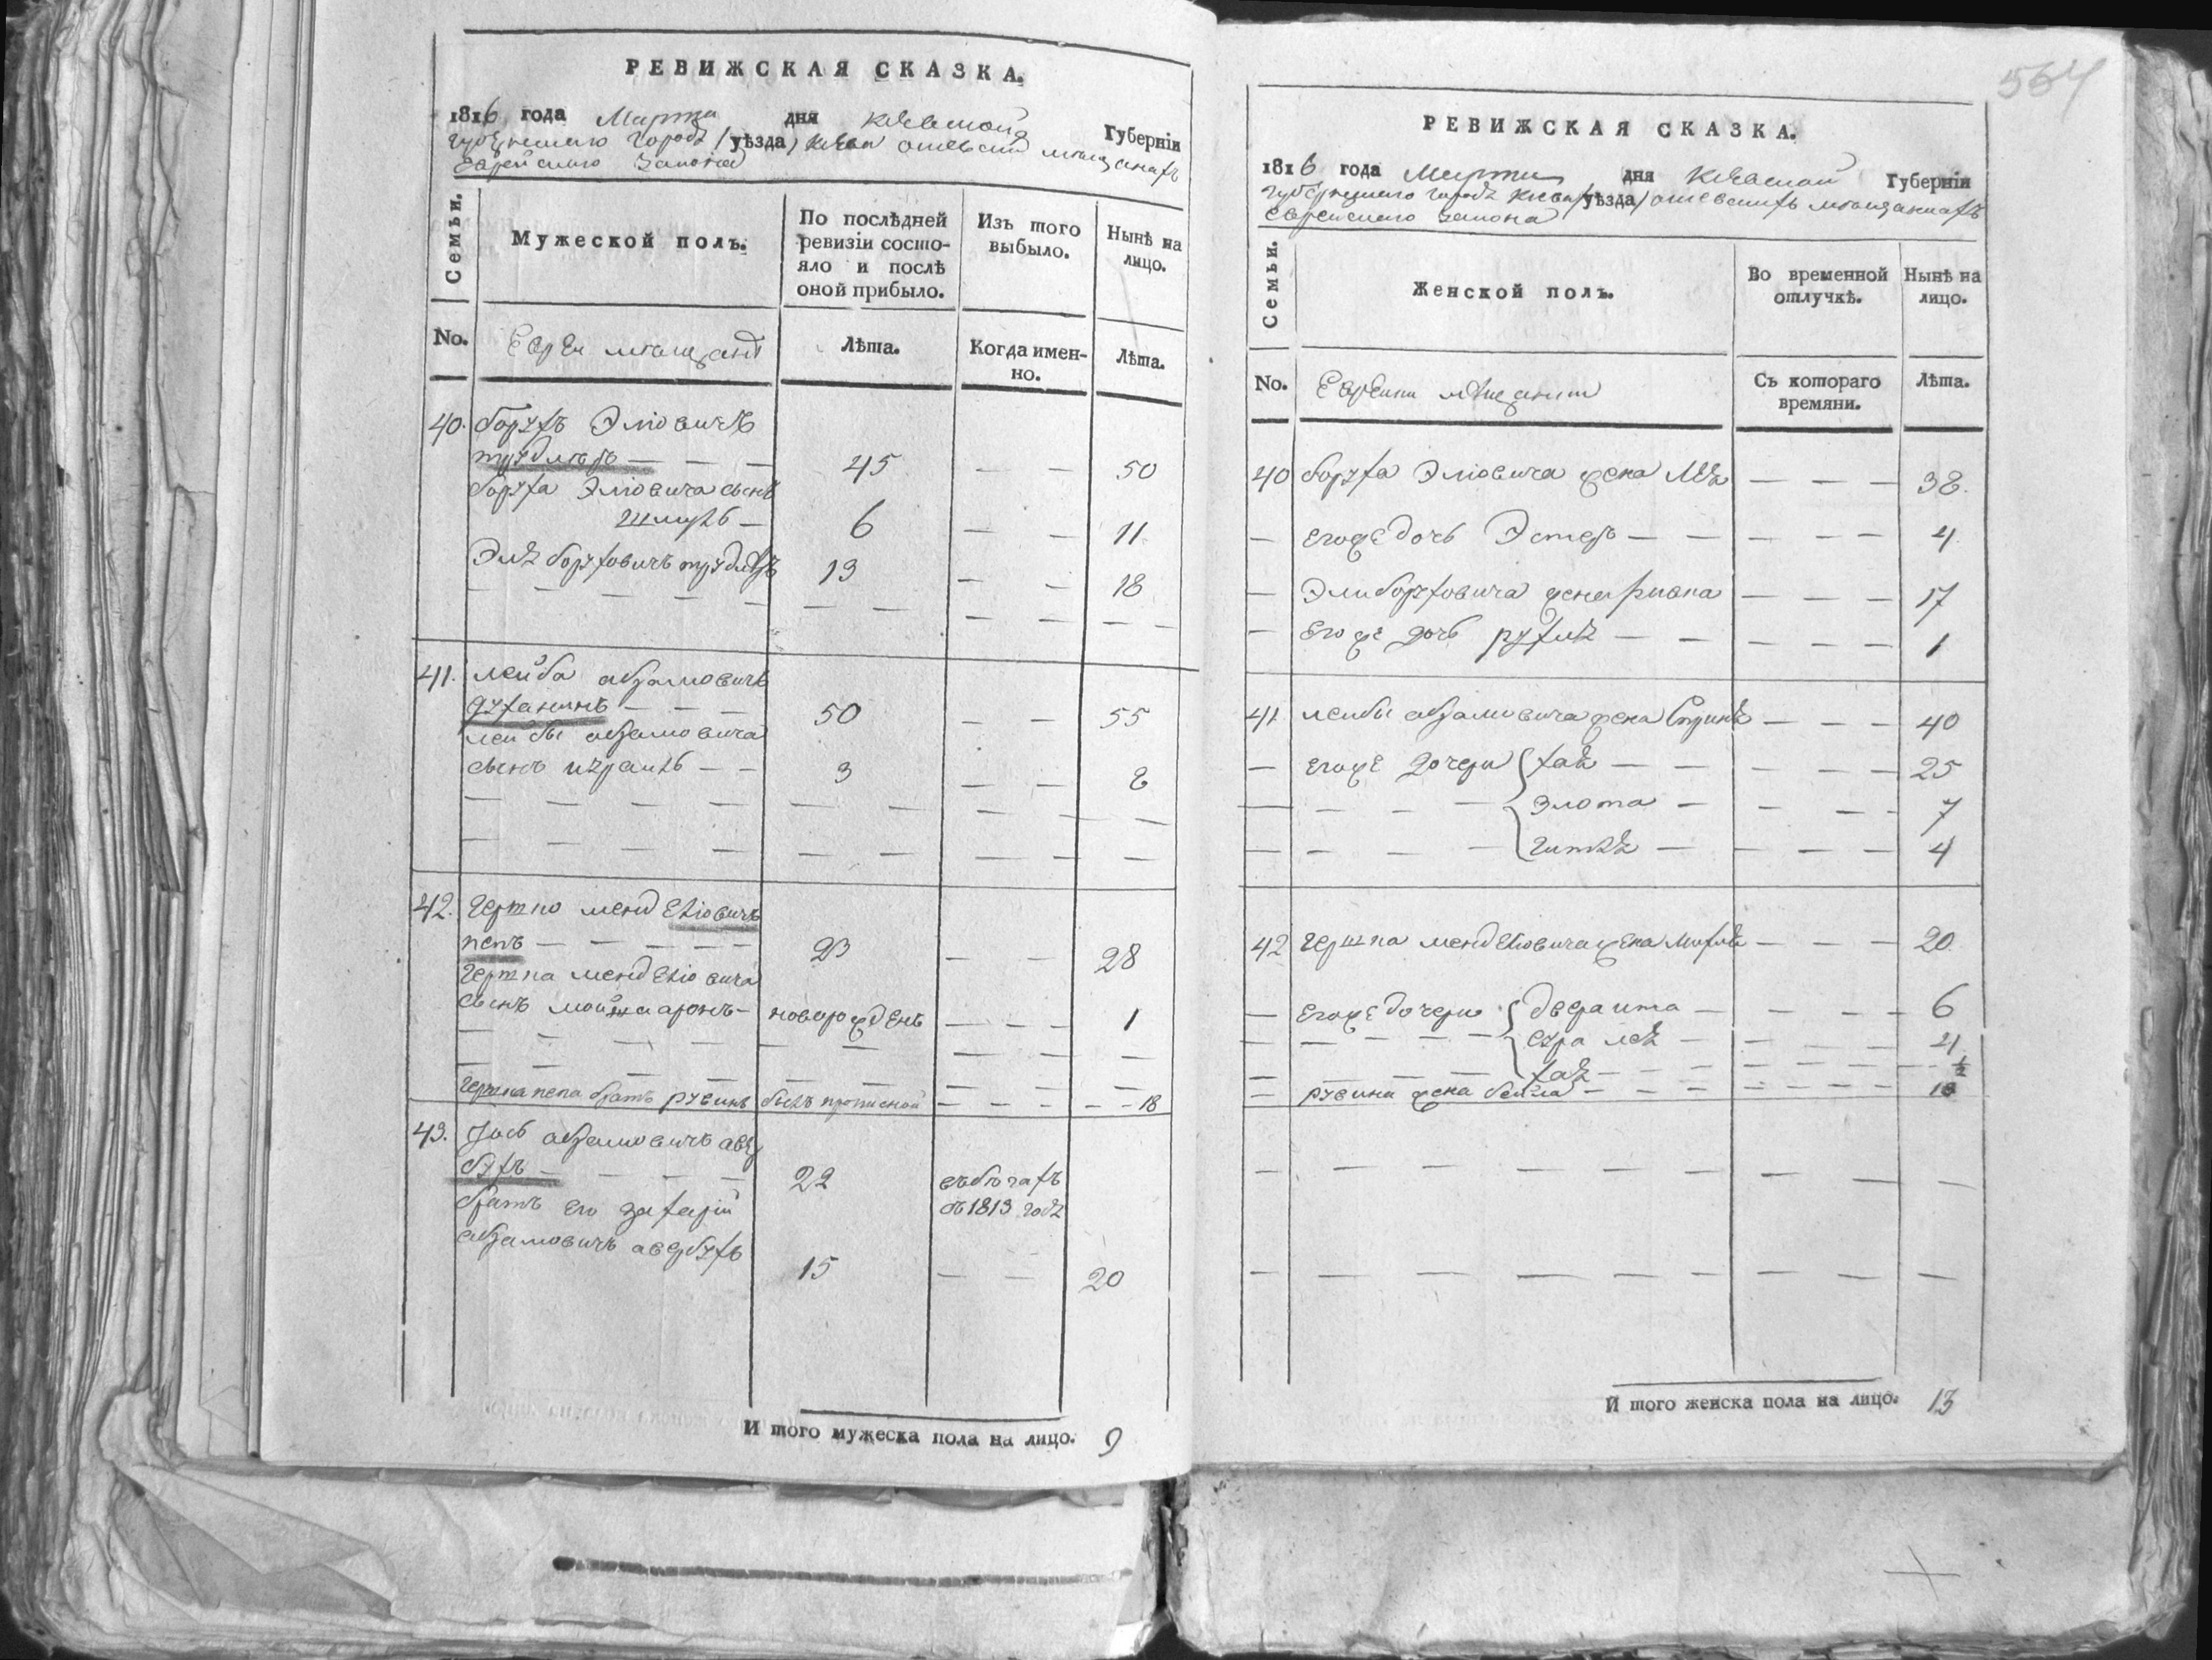 РЕВИЖСКАЯ СКАЗКА.
1816 года Марта дня Киевской Губерніи
Губернского города /уѣзда/ Киева о киевских мѣщанахъ
Еврейского закона
Семьи.
Мужеской полъ.
По послѣдней ревизіи состо-
яло и послѣ
оной прибыло.
Изъ того
выбыло.
Нынѣ на
лицо.
No.
Евреи мѣщане
Лѣта.
Когда имен-
но.
Лѣта.
40. борухъ Эліовичъ
трудлеръ — — — 45 — — 50
боруха Эліовича сынъ
Шмуль — 6 — — 11
Эля боруховичъ трудлеръ 13 — — 18
41. лейба абрамовичъ
духанинъ — — — 50 — — 55
лейбы абрамовича
сынъ израиль — — 3 — — 8
42. Гершко менделіовичъ
пепъ — — — — — 23 — — 28
Гершка менделіовича
сынъ мойша аронъ — новорожденъ — — — 1
Гершка пепа братъ рувинъ былъ прописной — — — — — 18
43. Іось абрамовичъ авер
бухъ — — — — 22 въ бегахъ
братъ его захарій съ 1813 года
абрамовичъ авербухъ
15 — — 20
И того мужеска пола на лицо. 9
564
РЕВИЖСКАЯ СКАЗКА.
1816 года Марта дня Киевской Губерніи
Губернского города Киева /уѣзда/ о киевскихъ мѣщанкахъ
Еврейского закона
Семьи.
Женской полъ.
Во временной
отлучкѣ.
Нынѣ на
лицо.
No.
Съ котораго
времяни.
Лѣта.
40 боруха Эліовича жена Лея — — — 38.
— его же дочь Эстеръ — — — — — 4.
— Эли боруховича жена ривка — — — 17
— его же дочь рухля — — — — — 1
41 лейбы абрамовича жена — — — 40
— его же дочери хая — — — — — 25
Злота — — — — 7
Гителя — — — — 4
42 Гершка менделіовича жена Михля — — — 20.
— его же дочери двера ита — — — — 6
сура лея — — — — 4
хая — — — — ½
— рувина жена бейла — — — — — — 18
И того женска пола на лицо. 13